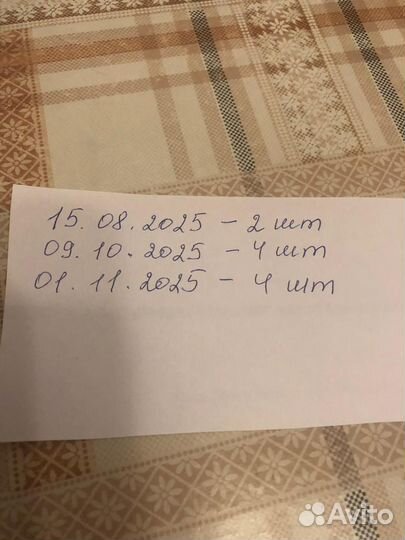 15.08.2025 – 2 шт
09.10.2025 – 4 шт
01.11.2025 – 4 шт
Avito